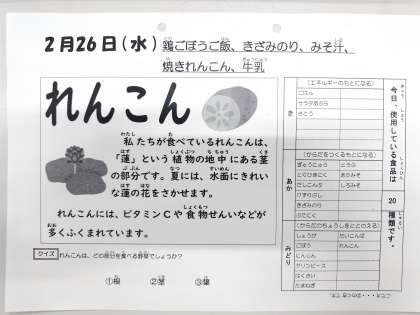 2月26日(水) 鶏ごぼうご飯、きざみのり、みそ汁、
焼きれんこん、牛乳
れんこん
私たちが食べているれんこんは、
「蓮」という植物の地中にある茎
の部分です。夏には、水面にきれい
な蓮の花をさかせます。
れんこんには、ビタミンCや食物せんいなどが
多くふくまれています。
クイズ れんこんは、どの部分を食べる野菜でしょうか?
①根 ②茎 ③葉
今日、使用している食品は 20 種類です。
き
(エネルギーのもとになる)
ごはん
サラダあぶら
さとう
あか
(からだをつくるもとになる)
ぎゅうにゅう とうふ
とりひきにく あかみそ
だしこんぶ しろみそ
けずりぶし
きざみのり
ぶたにく
みどり
(からだのちょうしをととのえる)
しょうが だいこんば
ごぼう れんこん
にんじん
グリンピース
はくさい
たまねぎ